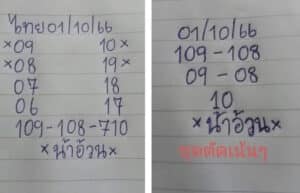 ไทย01/10/66
×09 10×
×08 19×
07 18
06 17
109-108-710
×น้ำอ้วน×
01/10/66
109-108
09-08
10
×น้ำอ้วน×
ชุดตัดเน้นๆ